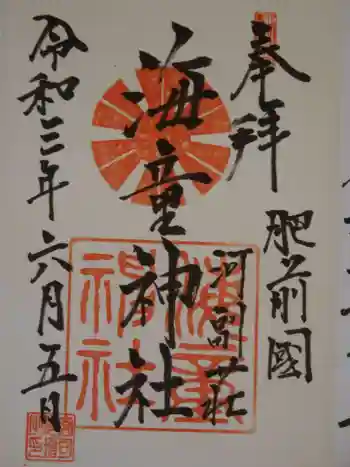 奉拝
肥前國
河副荘
海童神社
令和三年六月五日